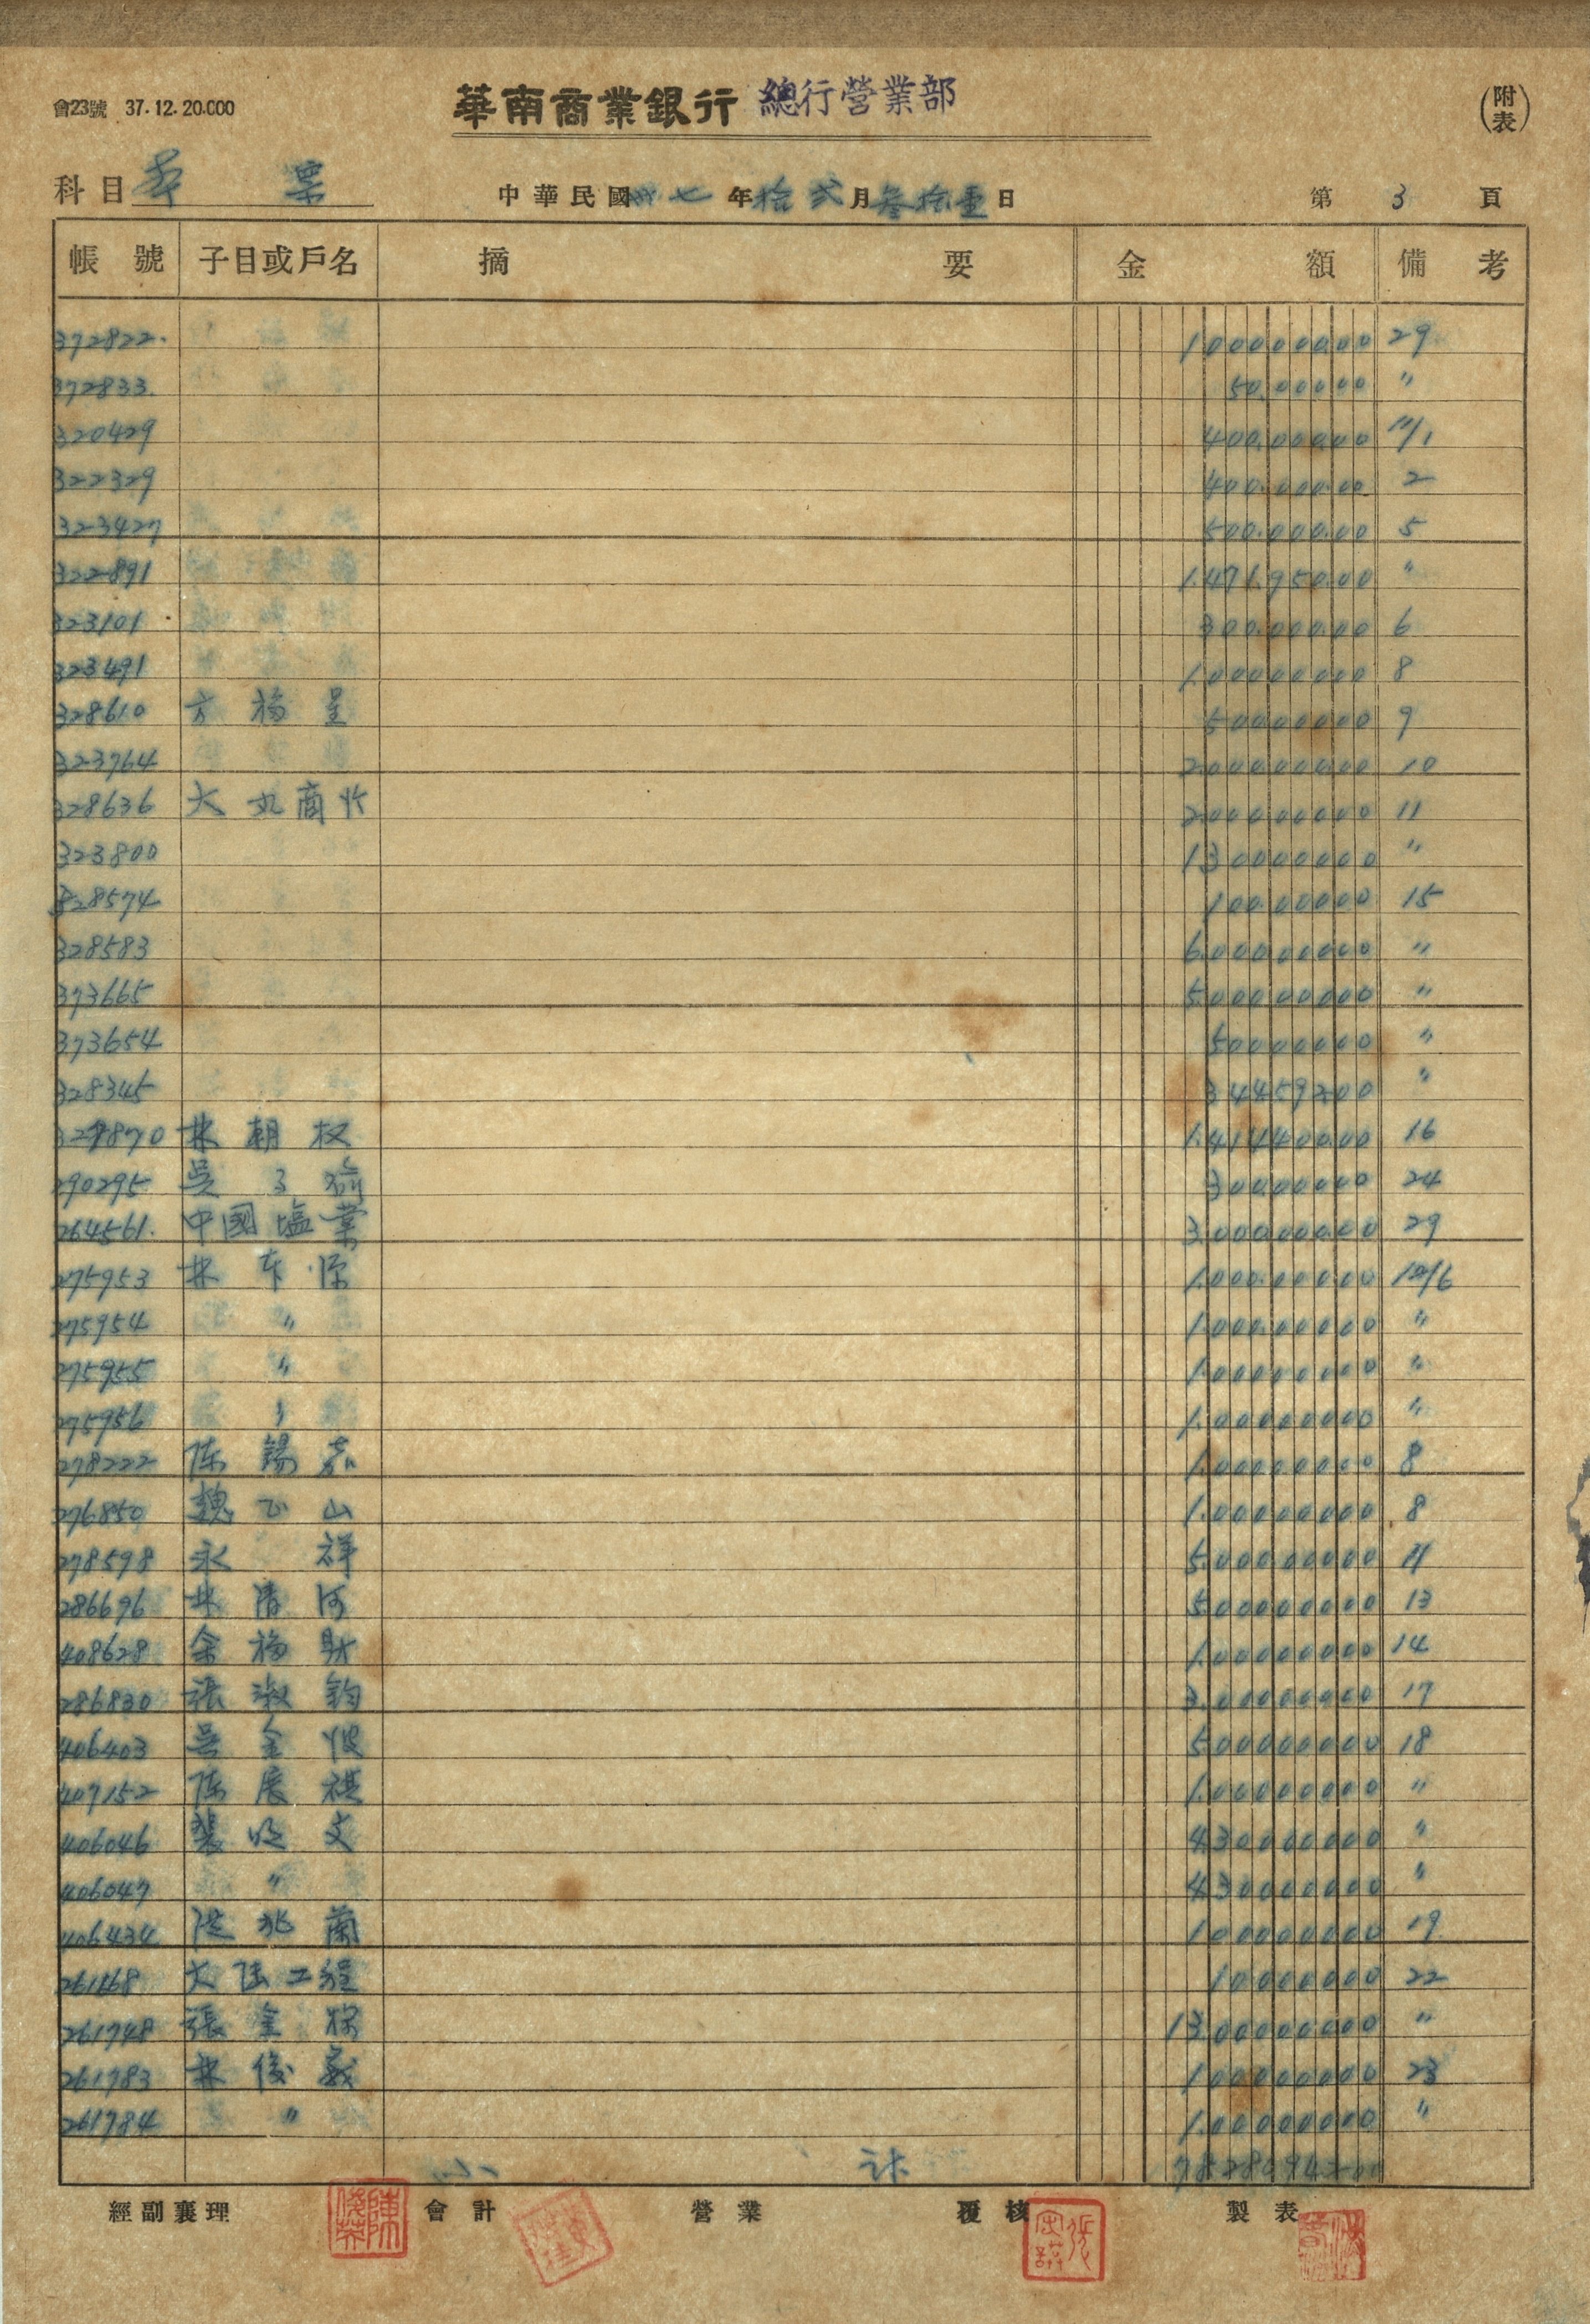 會23號 37.12.20.000 華南商業銀行 總行營業部 (附表)
科目 本票 中華民國卅七年拾弍月叁拾壹日 第3頁
帳號 子目或戶名 摘要 金額 備考
372822. 1000000.00 29
372833. 50.000.00 〃
320429 400.000.00 11/1
322329 400.000.00 2
323427 500.000.00 5
322891 1.471.950.00 〃
323101 300.000.00 6
323491 1.000000.00 8
328610 方福呈 500000.00 9
323764 2.000000.00 10
328636 大丸商行 2.000000.00 11
323800 1300000.00 〃
328574 100.000.00 15
328583 6.000000.00 〃
373665 5.000000.00 〃
373654 500000.00 〃
328345 344592.00 〃
327870 林朝权 1.414400.00 16
290295 吳子瑜 300000.00 24
264561. 中國塩業 3.000000.00 29
275953 林本源 1.000.000.00 12/6
275954 〃 1.000.000.00 〃
275955 〃 1.000000.00 〃
275956 〃 1.000000.00 〃
278222 陈錫嘉 1.000000.00 8
276850 魏正山 1.000000.00 8
278598 永祥 5.000000.00 11
286696 林清河 5.000000.00 13
408628 余福財 1.000000.00 14
286830 張淑鈞 3.000000.00 17
406403 吳金 5.000000.00 18
407152 陈展祺 1.000000.00 〃
406046 裴明文 4.300000.00 〃
406047 〃 4.300000.00 〃
406434 洪兆蘭 1.000000.00 19
261168 大陆工程 100000.00 22
261748 張金 13.000000.00 〃
261783 林俊義 1.000000.00 23
261784 〃 1.000000.00 〃
小計 78280942.00
經副襄理 會計 營業 覆核 製表